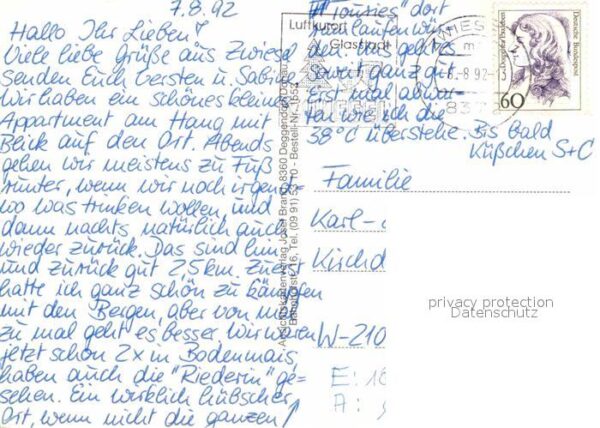 7.8.92
Hallo Ihr Lieben!
Viele liebe Grüße aus Zwiesel
senden Euch Carsten u. Sabine
Wir haben ein schönes kleines
Appartment am Hang mit
Blick auf den Ort. Abends
gehen wir meistens zu Fuß
runter, wenn wir noch irgend-
wo was trinken wollen, und
dann nachts natürlich auch
wieder zurück. Das sind hin
und zurück gut 2,5 km. Zuerst
hatte ich ganz schön zu kämpfen
mit den Bergen, aber von mal
zu mal geht es besser. Wir waren
jetzt schon 2x in Bodenmais,
haben auch die "Riederin" ge-
sehen. Ein wirklich hübscher
Ort, wenn nicht die ganzen
"Tousies" dort
rumlaufen wür-
den. Uns geht es
soweit ganz gut.
Erst mal abwar-
ten wie ich die
38°C überstehe. Bis bald
Küßchen S+C
Luftkurort
Glasstadt
Ansichtskartenverlag Josef Brandl, 8360 Deggendorf/Donau
Tel. (09 91) 53 10 - Bestell-Nr. 1652
-8.92-13
837
Deutsche Bundespost
60
Familie
Karl-
Kirchd
W-210
E: 18
A:
privacy protection
Datenschutz